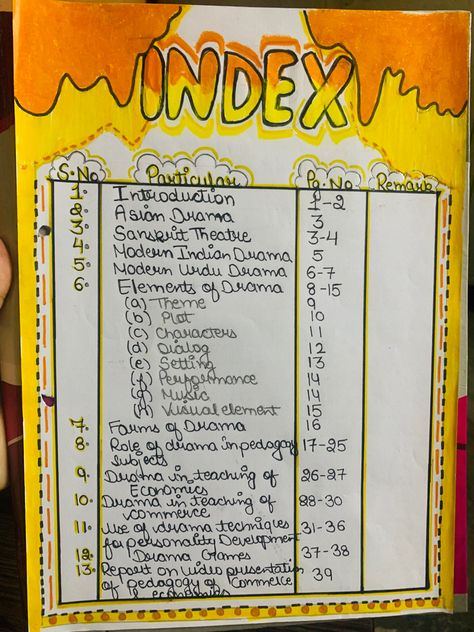 INDEX
S.No Particular Pg. No Remark
1. Introduction 1-2
2. Asian Drama 3
3. Sanskrit Theatre 3-4
4. Modern Indian Drama 5
5. Modern Urdu Drama 6-7
6. Elements of Drama 8-15
(a) Theme 9
(b) Plot 10
(c) Characters 11
(d) Dialog 12
(e) Setting 13
(f) Performance 14
(g) Music 14
(h) Visual element 15
7. Forms of Drama 16
8. Role of drama in pedagogy 17-25
subjects
9. Drama in teaching of 26-27
Economics
10. Drama in teaching of 28-30
commerce
11. Use of drama techniques 31-36
for personality Development
12. Drama Games 37-38
13. Report on video presentation
of pedagogy of Commerce 39
& economics